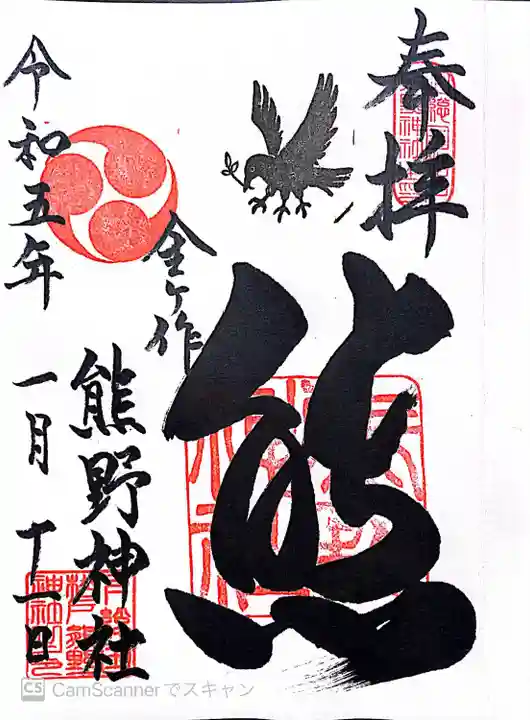 奉拝
熊
金ケ作
熊野神社
令和五年
一月十一日
CS CamScannerでスキャン